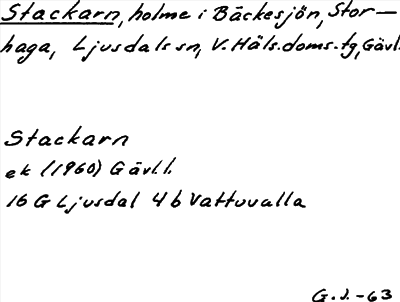 Stackarn, holme i Bäckesjön, Stor-
haga, Ljusdals sn, V. Häls. doms. tg, Gävl.
Stackarn
ek (1960) Gävl.l.
16 G Ljusdal 4 b Vattuvalla
G.J. -63